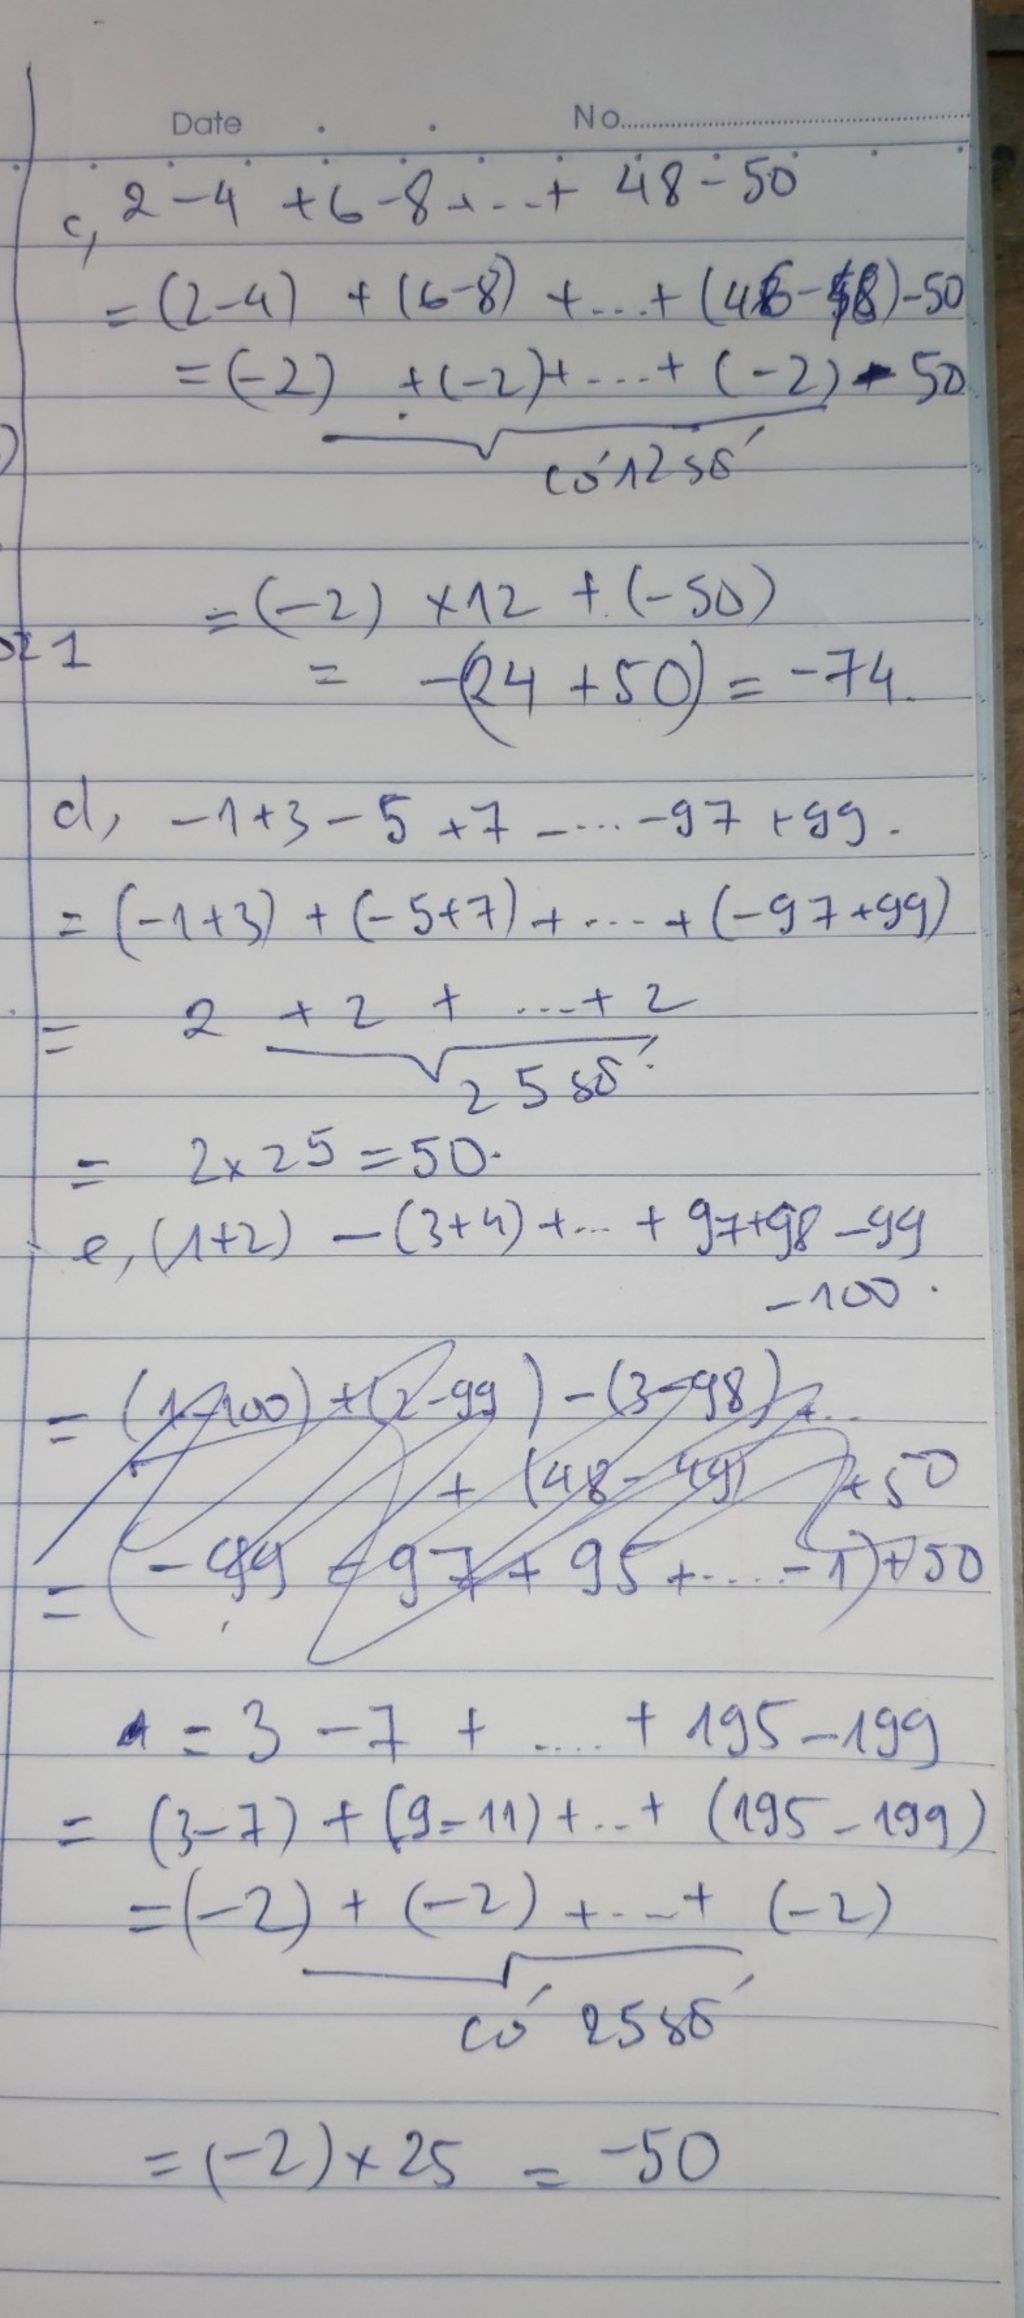 Date No
c, 2-4 +6-8+...+ 48-50
= (2-4) + (6-8) +...+ (46-48)-50
= (-2) +(-2)+...+ (-2) - 50
có 12 số
= (-2) ×12 + (-50)
21
= -(24 +50) = -74.
d, -1+3-5+7-...-97+99.
= (-1+3) + (-5+7) +...+ (-97+99)
= 2 +2 + ...+ 2
25 số
= 2×25 = 50.
e, (1+2) - (3+4) +... + 97+98 -99
-100.
= (1-100) + (2-99) - (3-98) +...
+ (48-49) +50
= (-99 - 97 + 95 +....-1) +50
= 3 -7 + .... + 195-199
= (3-7) + (9-11) +...+ (195-199)
= (-2) + (-2) +...+ (-2)
có 25 số
= (-2)×25 = -50